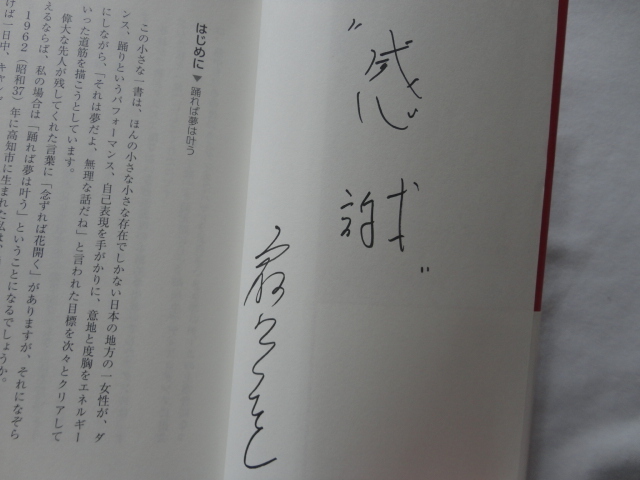 "感
謝"
はじめに ▼ 踊れば夢は叶う
この小さな一書は、ほんの小さな小さな存在でしかない日本の地方の一女性が、ダ
ンス、踊りというパフォーマンス、自己表現を手がかりに、意地と度胸をエネルギー
にしながら、「それは夢だよ、無理な話だね」と言われた目標を次々とクリアして
いった道筋を描こうとしています。
偉大な先人が残してくれた言葉に「念ずれば花開く」がありますが、それになぞら
えるならば、私の場合は「踊れば夢は叶う」ということになるでしょうか。
1962(昭和37)年に高知市に生まれた私は、
けば一日中、キャッ